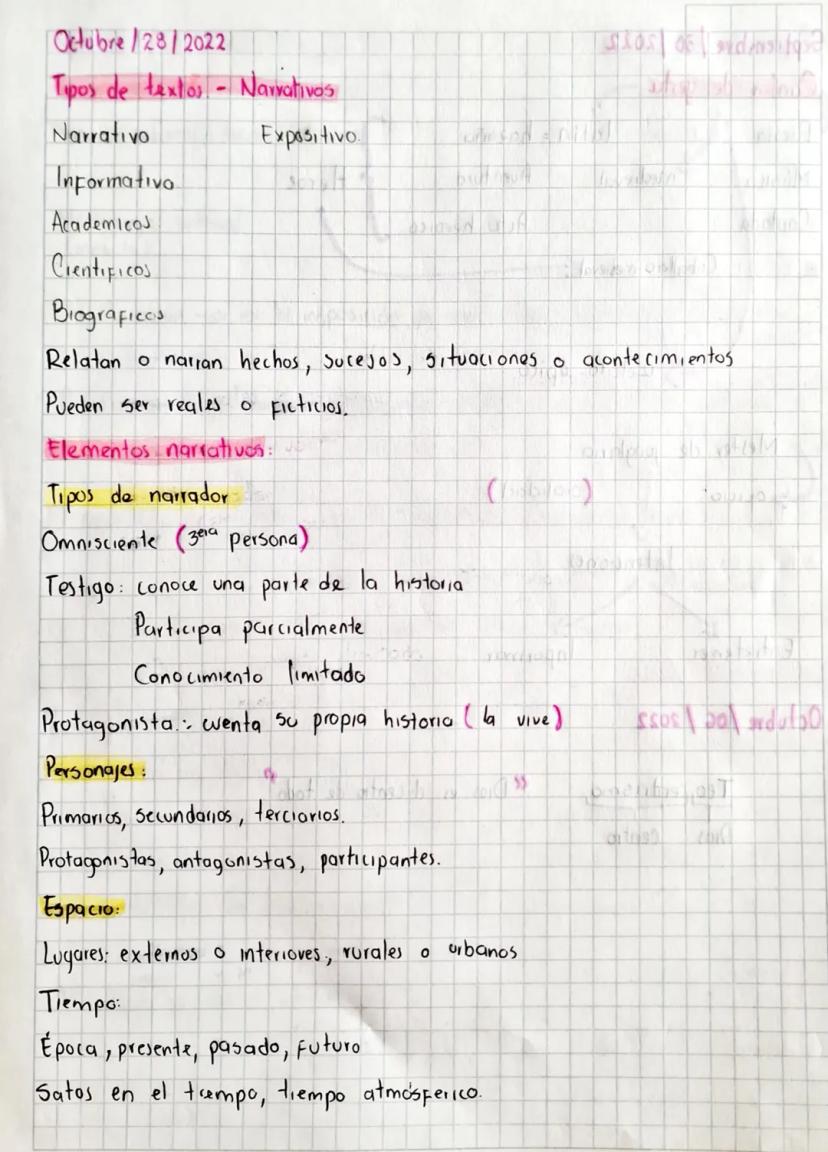 Octubre/28/2022
Tipos de textos - Narrativos
Narrativo Expositivo.
Informativo
Academicos
Cientificos
Biograficos
Relatan o narran hechos, sucesos, situaciones o acontecimientos
Pueden ser reales o ficticios.
Elementos narrativos:
Tipos de narrador
Omnisciente (3era persona)
Testigo: conoce una parte de la historia
Participa parcialmente
Conocimiento limitado
Protagonista: cuenta su propia historia (la vive)
Personajes:
Primarios, secundarios, terciarios.
Protagonistas, antagonistas, participantes.
Espacio:
Lugares: externos o interiores, rurales o urbanos
Tiempo:
Época, presente, pasado, futuro
Satos en el tiempo, tiempo atmósferico.